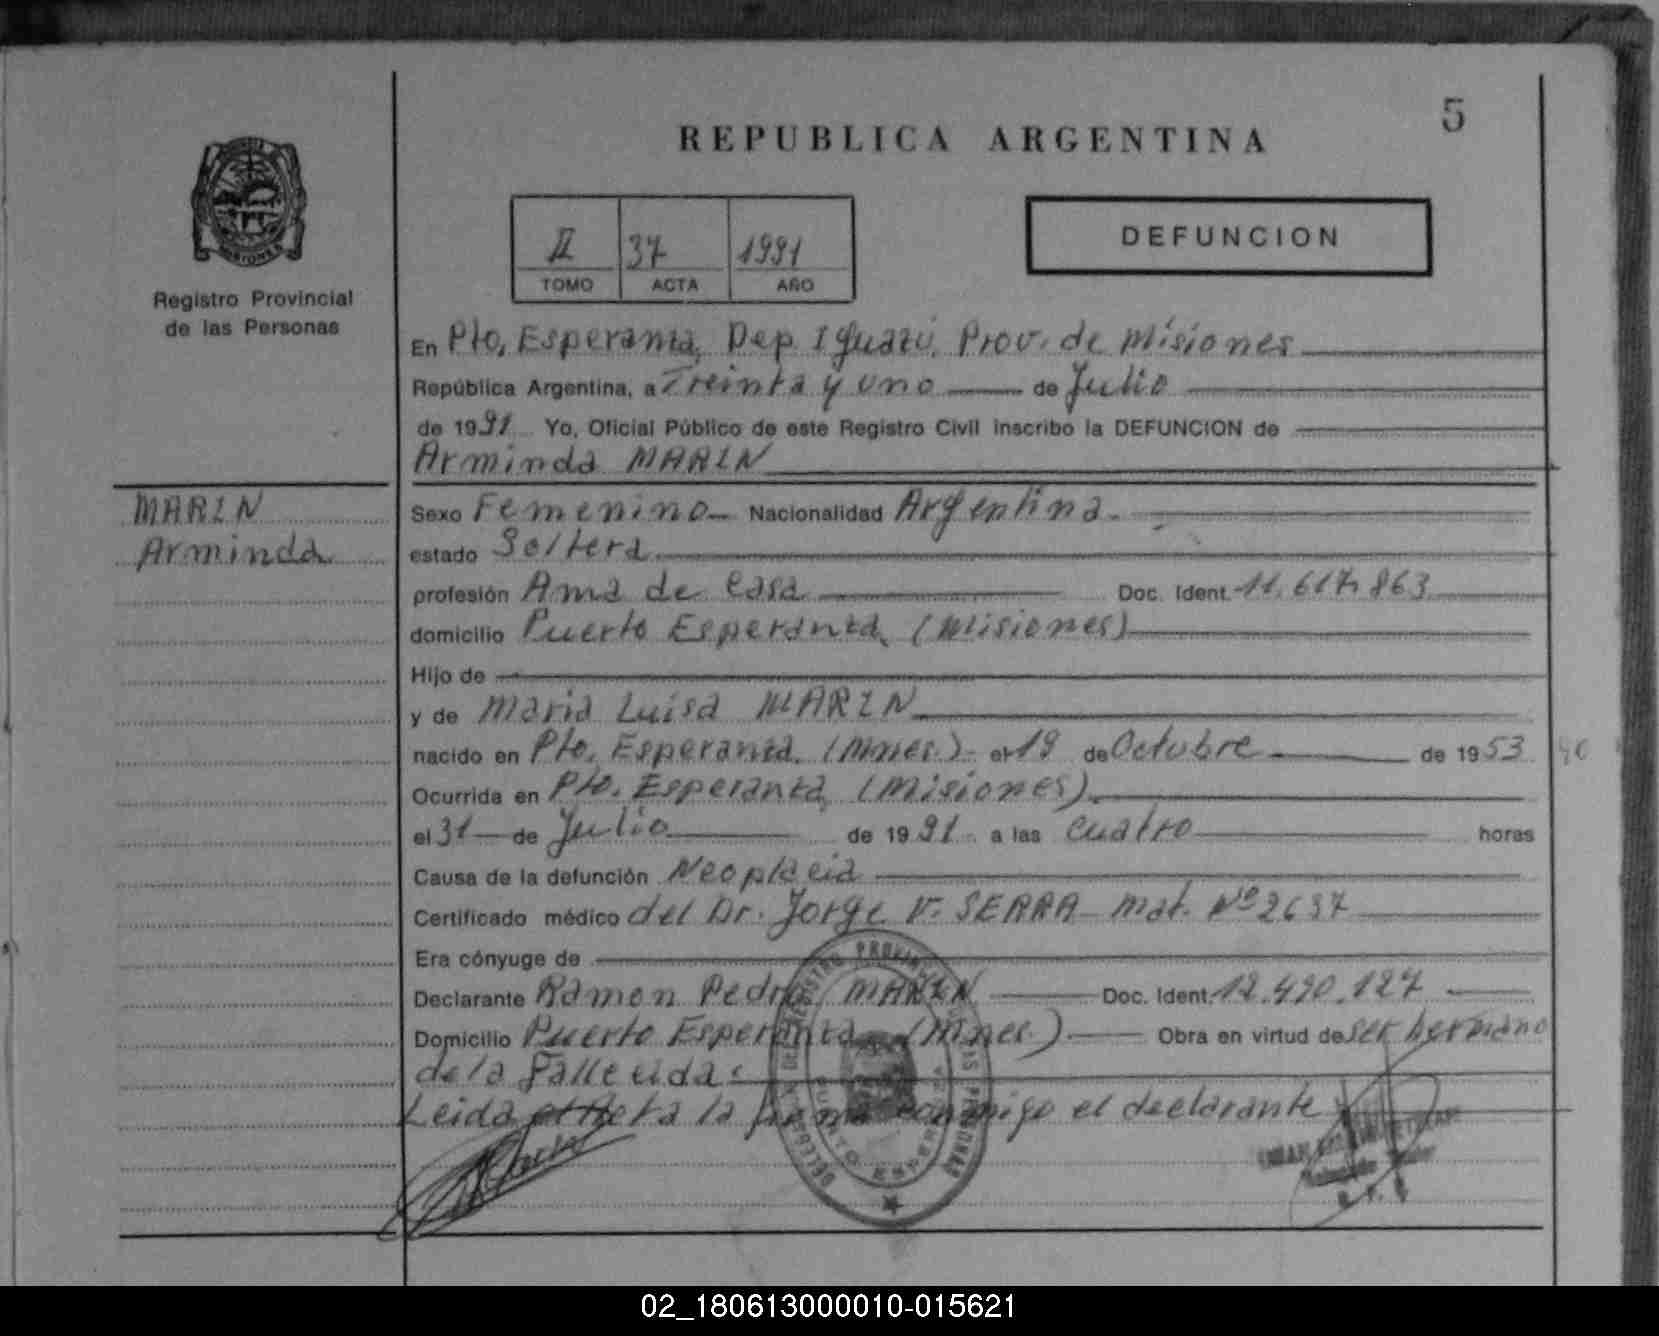 5
REPUBLICA ARGENTINA
II 37 1991
TOMO ACTA AÑO
DEFUNCION
Registro Provincial
de las Personas
MARIN
Arminda
En Pto, Esperanza, Dep. Iguazú, Prov. de Misiones
República Argentina, a Treinta y uno de Julio
de 1991 Yo, Oficial Público de este Registro Civil inscribo la DEFUNCION de
Arminda MARIN
Sexo Femenino Nacionalidad Argentina
estado Soltera
profesión Ama de Casa Doc. Ident. 11.617.863
domicilio Puerto Esperanza, (Misiones)
Hijo de
y de Maria Luisa MARIN
nacido en Pto. Esperanza, (Mnes.) el 19 de Octubre de 1953
Ocurrida en Pto. Esperanza, (Misiones)
el 31 de Julio de 1991 a las cuatro horas
Causa de la defunción Neoplacia
Certificado médico del Dr. Jorge V. SERRA mat. Nº 2637
Era cónyuge de
Declarante Ramon Pedro MARIN Doc. Ident. 12.490.127
Domicilio Puerto Esperanza (Mnes.) Obra en virtud de ser hermano
de la Fallecida.
Leida el Acta la firma conmigo el declarante
02_180613000010-015621